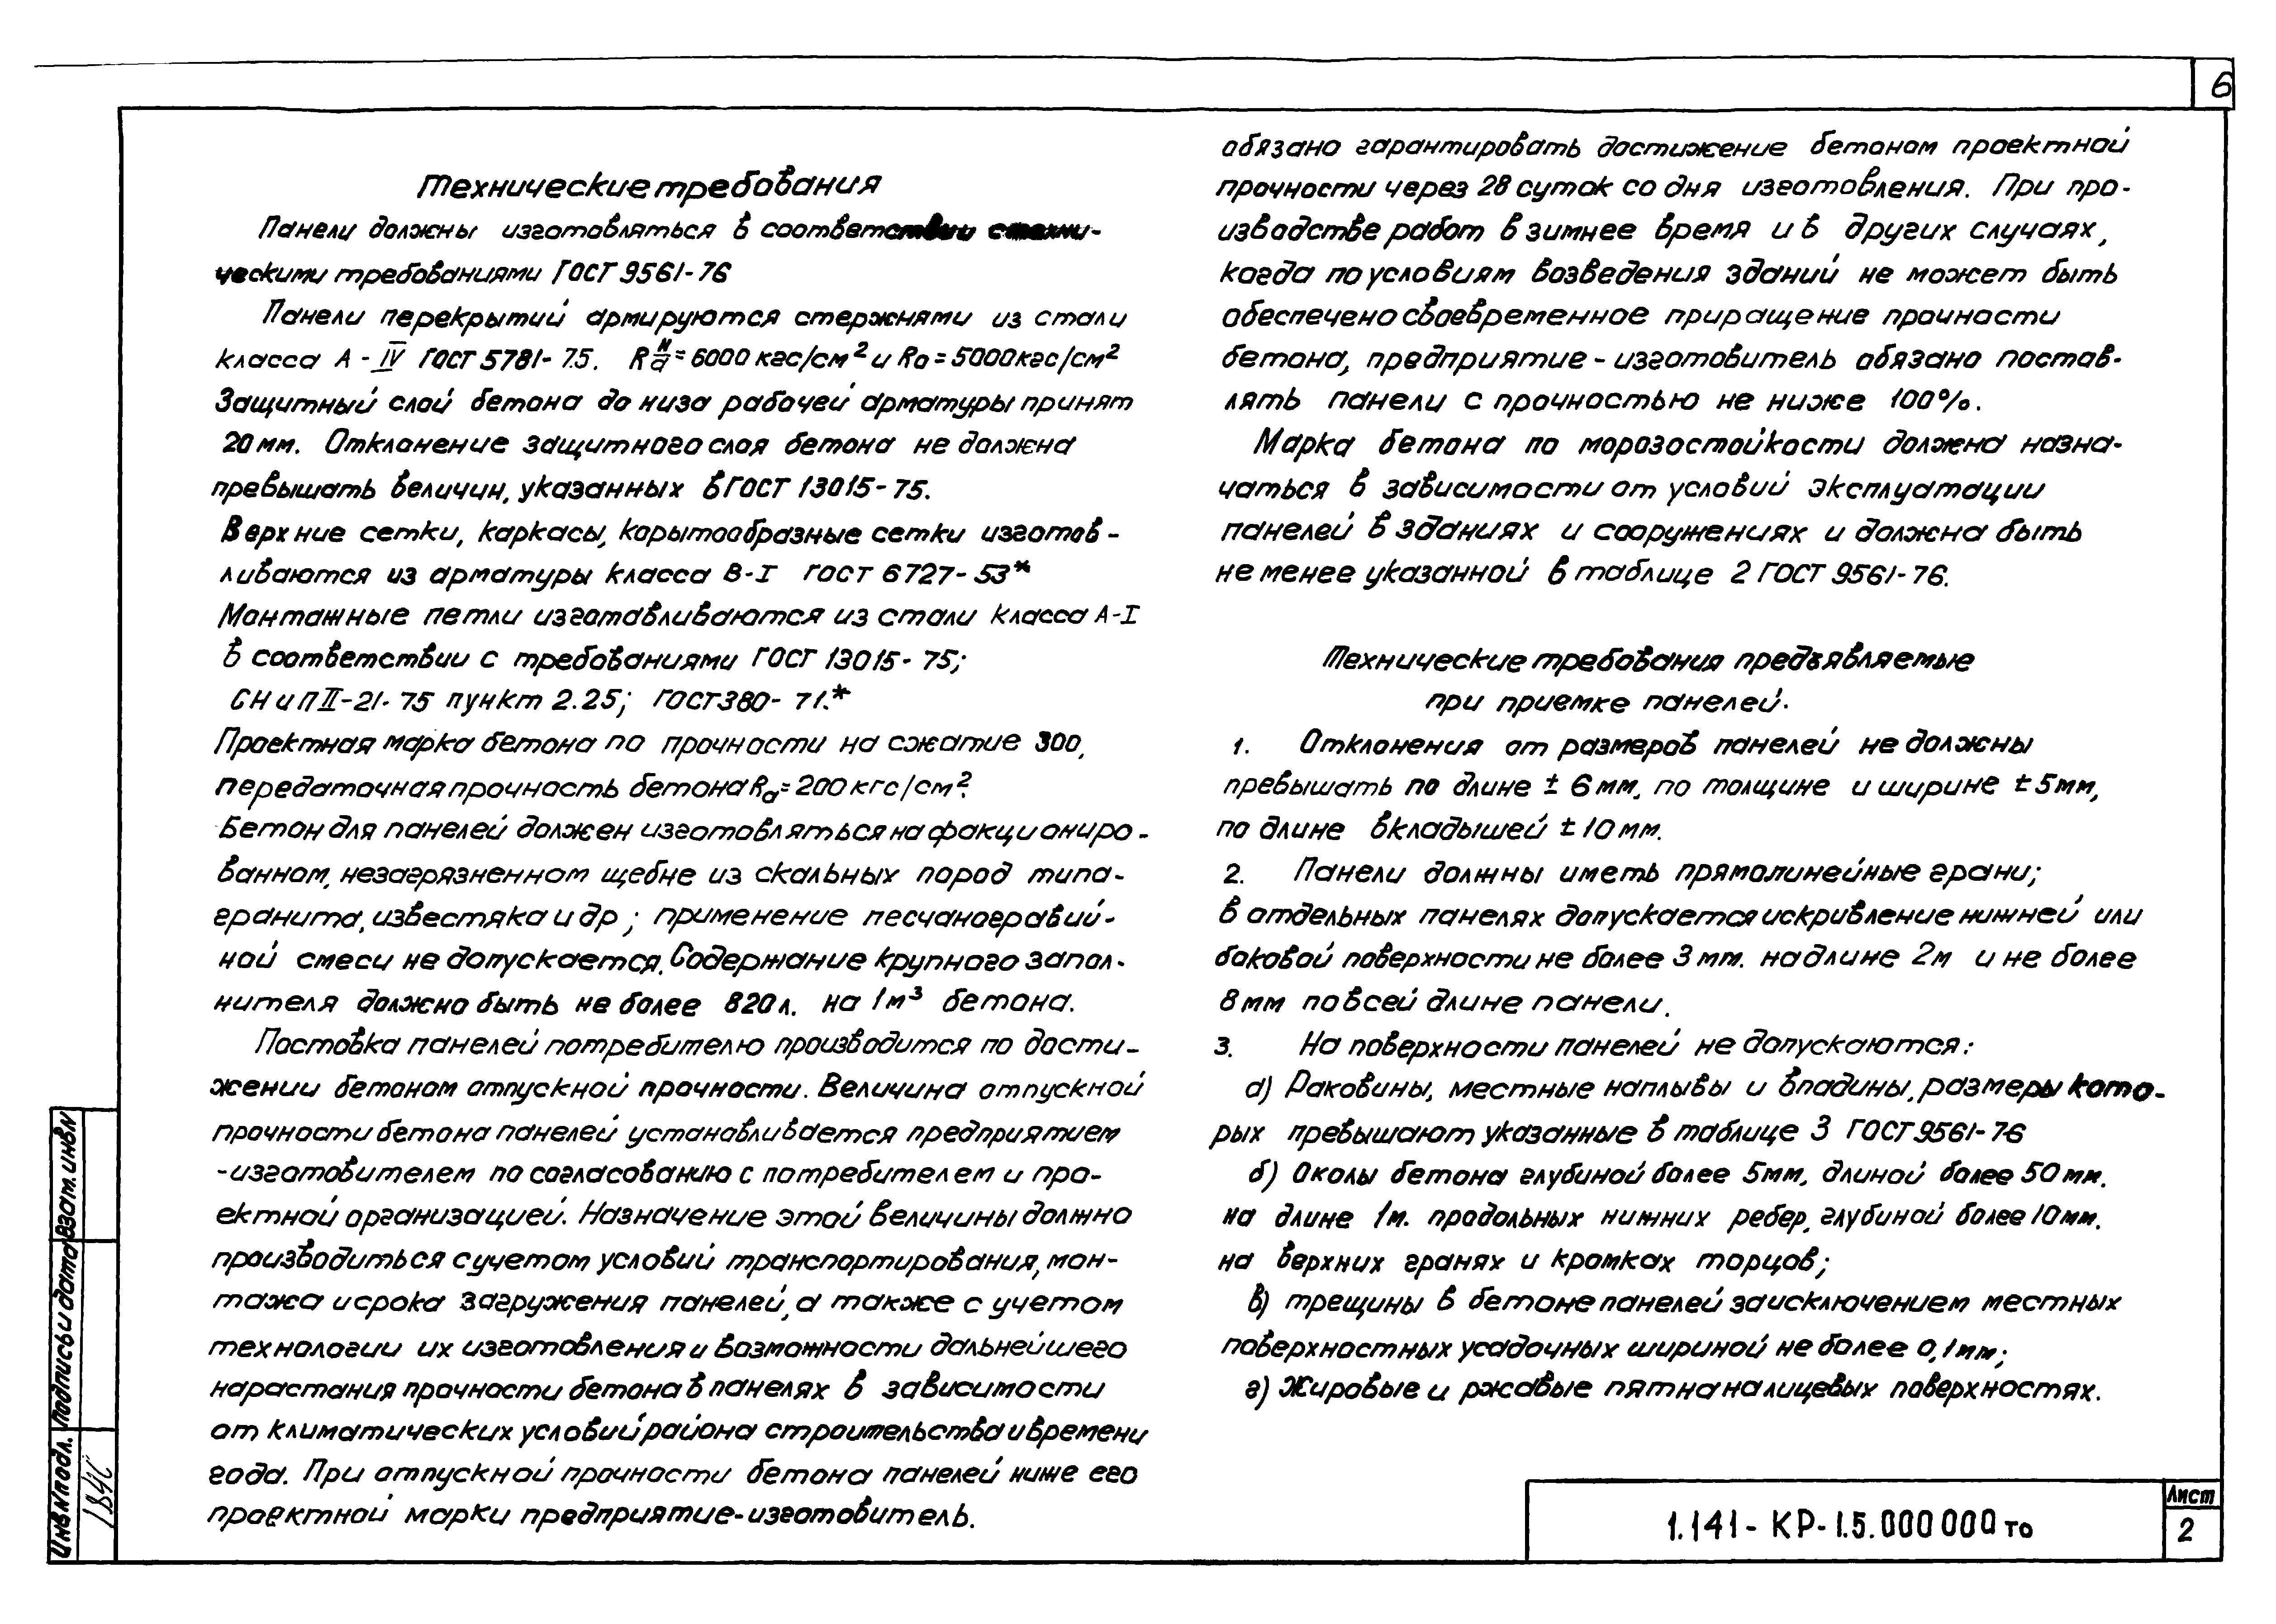 6
Технические требования
Панели должны изготовляться в соответствии с техни-
ческими требованиями ГОСТ 9561-76
Панели перекрытий армируются стержнями из стали
класса А-IV ГОСТ 5781-75. Rᴺₐ=6000кгс/см² и Rа=5000кгс/см²
Защитный слой бетона до низа рабочей арматуры принят
20мм. Отклонение защитного слоя бетона не должна
превышать величин, указанных в ГОСТ 13015-75.
Верхние сетки, каркасы, корытообразные сетки изготов-
ливаются из арматуры класса В-I ГОСТ 6727-53*
Монтажные петли изготавливаются из стали класса А-I
в соответствии с требованиями ГОСТ 13015-75;
СНиП II-21-75 пункт 2.25; ГОСТ380-71.*
Проектная марка бетона по прочности на сжатие 300,
передаточная прочность бетона Rо=200кгс/см².
Бетон для панелей должен изготовляться на факциониро-
ванном, незагрязненном щебне из скальных пород типа-
гранита, известяка и др; применение песчаногравий-
ной смеси не допускается. Содержание крупного запол-
нителя должно быть не более 820л. на 1м³ бетона.
Поставка панелей потребителю производится по дости-
жении бетоном отпускной прочности. Величина отпускной
прочности бетона панелей устанавливается предприятием
-изготовителем по согласованию с потребителем и про-
ектной организацией. Назначение этой величины должно
производиться с учетом условий транспортирования, мон-
тажа и срока загружения панелей, а также с учетом
технологии их изготовления и возможности дальнейшего
нарастания прочности бетона в панелях в зависимости
от климатических условий района строительства и времени
года. При отпускной прочности бетона панелей ниже его
проектной марки предприятие-изготовитель.
обязано гарантировать достижение бетоном проектной
прочности через 28 суток со дня изготовления. При про-
изводстве работ в зимнее время и в других случаях,
когда по условиям возведения зданий не может быть
обеспечено своевременное приращение прочности
бетона, предприятие-изготовитель обязано постав-
лять панели с прочностью не ниже 100%.
Марка бетона по морозостойкости должна назна-
чаться в зависимости от условий эксплуатации
панелей в зданиях и сооружениях и должна быть
не менее указанной в таблице 2 ГОСТ 9561-76.
Технические требования предъявляемые
при приемке панелей.
1. Отклонения от размеров панелей не должны
превышать по длине ± 6мм, по толщине и ширине ±5мм,
по длине вкладышей ±10мм.
2. Панели должны иметь прямолинейные грани;
в отдельных панелях допускается искривление нижней или
боковой поверхности не более 3мм. на длине 2м и не более
8мм по всей длине панели.
3. На поверхности панелей не допускаются:
а) Раковины, местные наплывы и впадины, размеры кото-
рых превышают указанные в таблице 3 ГОСТ 9561-76
б) Околы бетона глубиной более 5мм, длиной более 50мм.
на длине 1м. продольных нижних ребер, глубиной более 10мм.
на верхних гранях и кромках торцов;
в) трещины в бетоне панелей за исключением местных
поверхностных усадочных шириной не более 0,1мм;
г) жировые и ржавые пятна на лицевых поверхностях.
Взам. инв N
Подпись и дата
Инв N подл.
1.141-КР-1.5.000 000 то
Лист
2